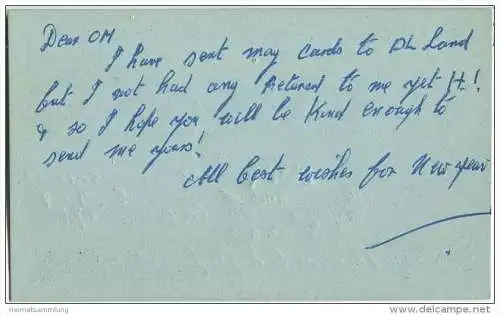 Dear OM
I have sent may cards to DL Land
but I not had any returned to me yet !
& so I hope you will be Kind enough to
send me yours!
All best wishes for New year
Heimatsammlung
www.delcampe.net